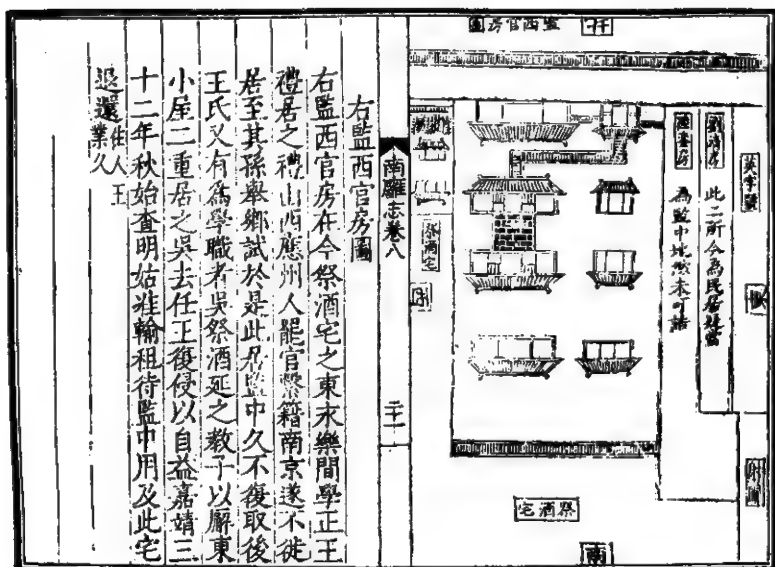 監西官房圖
此二所今為民居雖當
為監中地然未可詰
射圃
祭酒宅
祭酒宅
南
南雍志卷八
二十一
右監西官房圖
右監西官房在今祭酒宅之東永樂間學正王
禮居之禮山西應州人罷官繫籍南京遂不徙
居至其孫舉鄉試於是此居監中久不復取後
王氏又有為學職者吳祭酒延之教子以廨東
小屋二重居之吳去任王復侵以自益嘉靖三
十二年秋始查明姑准輸租待監中用及此宅
退還住人王業久